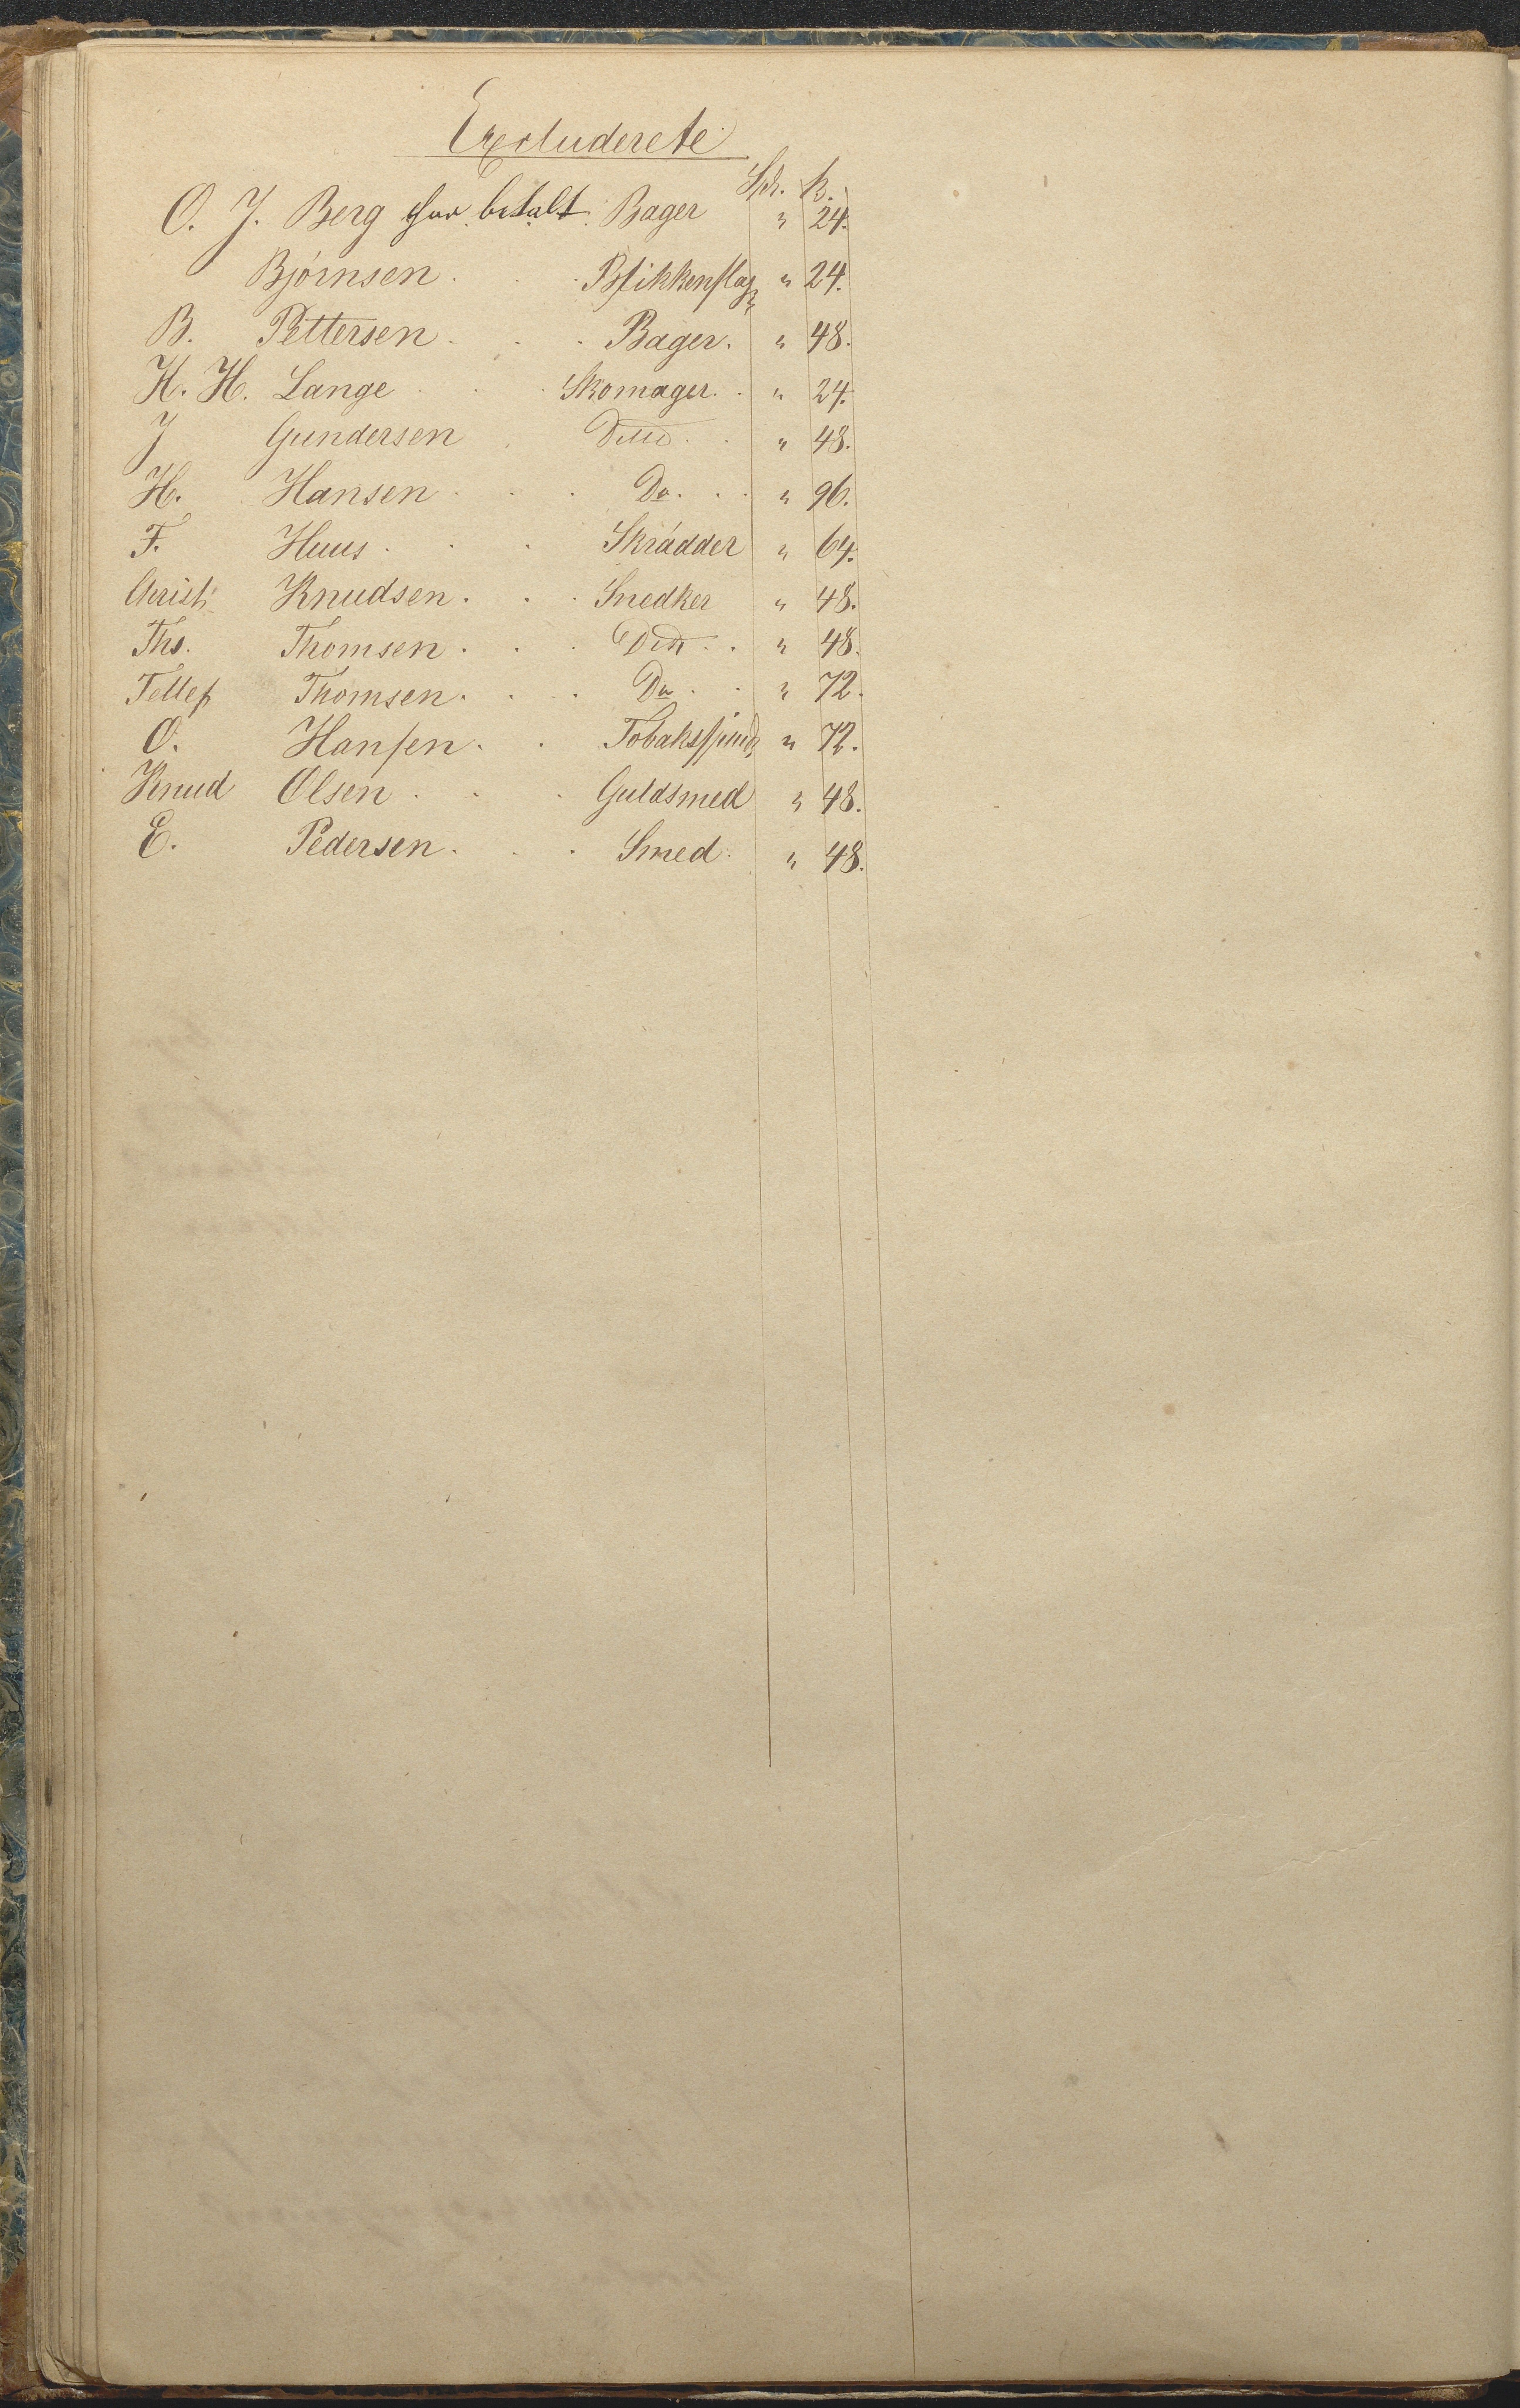 Excluderete
Spd. ß.
O. J. Berg har betalt. Bager " 24.
Bjørnsen . . Blikkenslag " 24.
B. Pettersen . . Bager. " 48.
H. H. Lange . . Skomager. . " 24.
J Gundersen . Ditto . . " 48.
H. Hansen . . . Do. . . " 96.
F. Huus . . . Skrädder " 64.
Christ: Knudsen . . . Snedker " 48.
Ths. Thomsen . . . Ditt . . " 48.
Tellef Thomsen . . . Do . . " 72.
O. Hansen . . Tobakspind " 72.
Knud Olsen . . . Guldsmed " 48.
E. Pedersen . . . Smed . " 48.